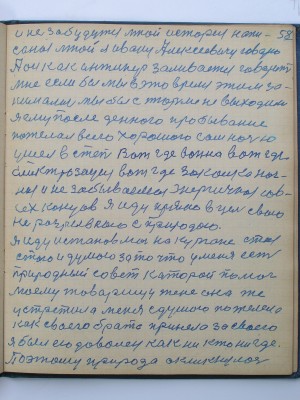 и не забудутся мной история напи- 58
саной мной я Ивану Алексеевичу говорю
А он как антихир заливается говорит
мне если бы мы в это время этим за-
нимались мы бы с тюрмы не выходили
Я ему после денного пребывание
пожелал всего хорошого сам ночю
ушел в степ Вот где волна вот где
електрозация вот где закалка нов-
ля и не забываемая энергичная сов-
сех концов Я иду прямо в цел свою
не разрывною с природою.
Я иду установлюс на кургане стою
стою и думаю за то что у меня есть
природный совет каторой помог
моему товарищу и мене она же
устретила меня с душою пожелено
как своего брата приняла за своего
я был ею доволен как никто нигде.
Поэтому природа окликнулас